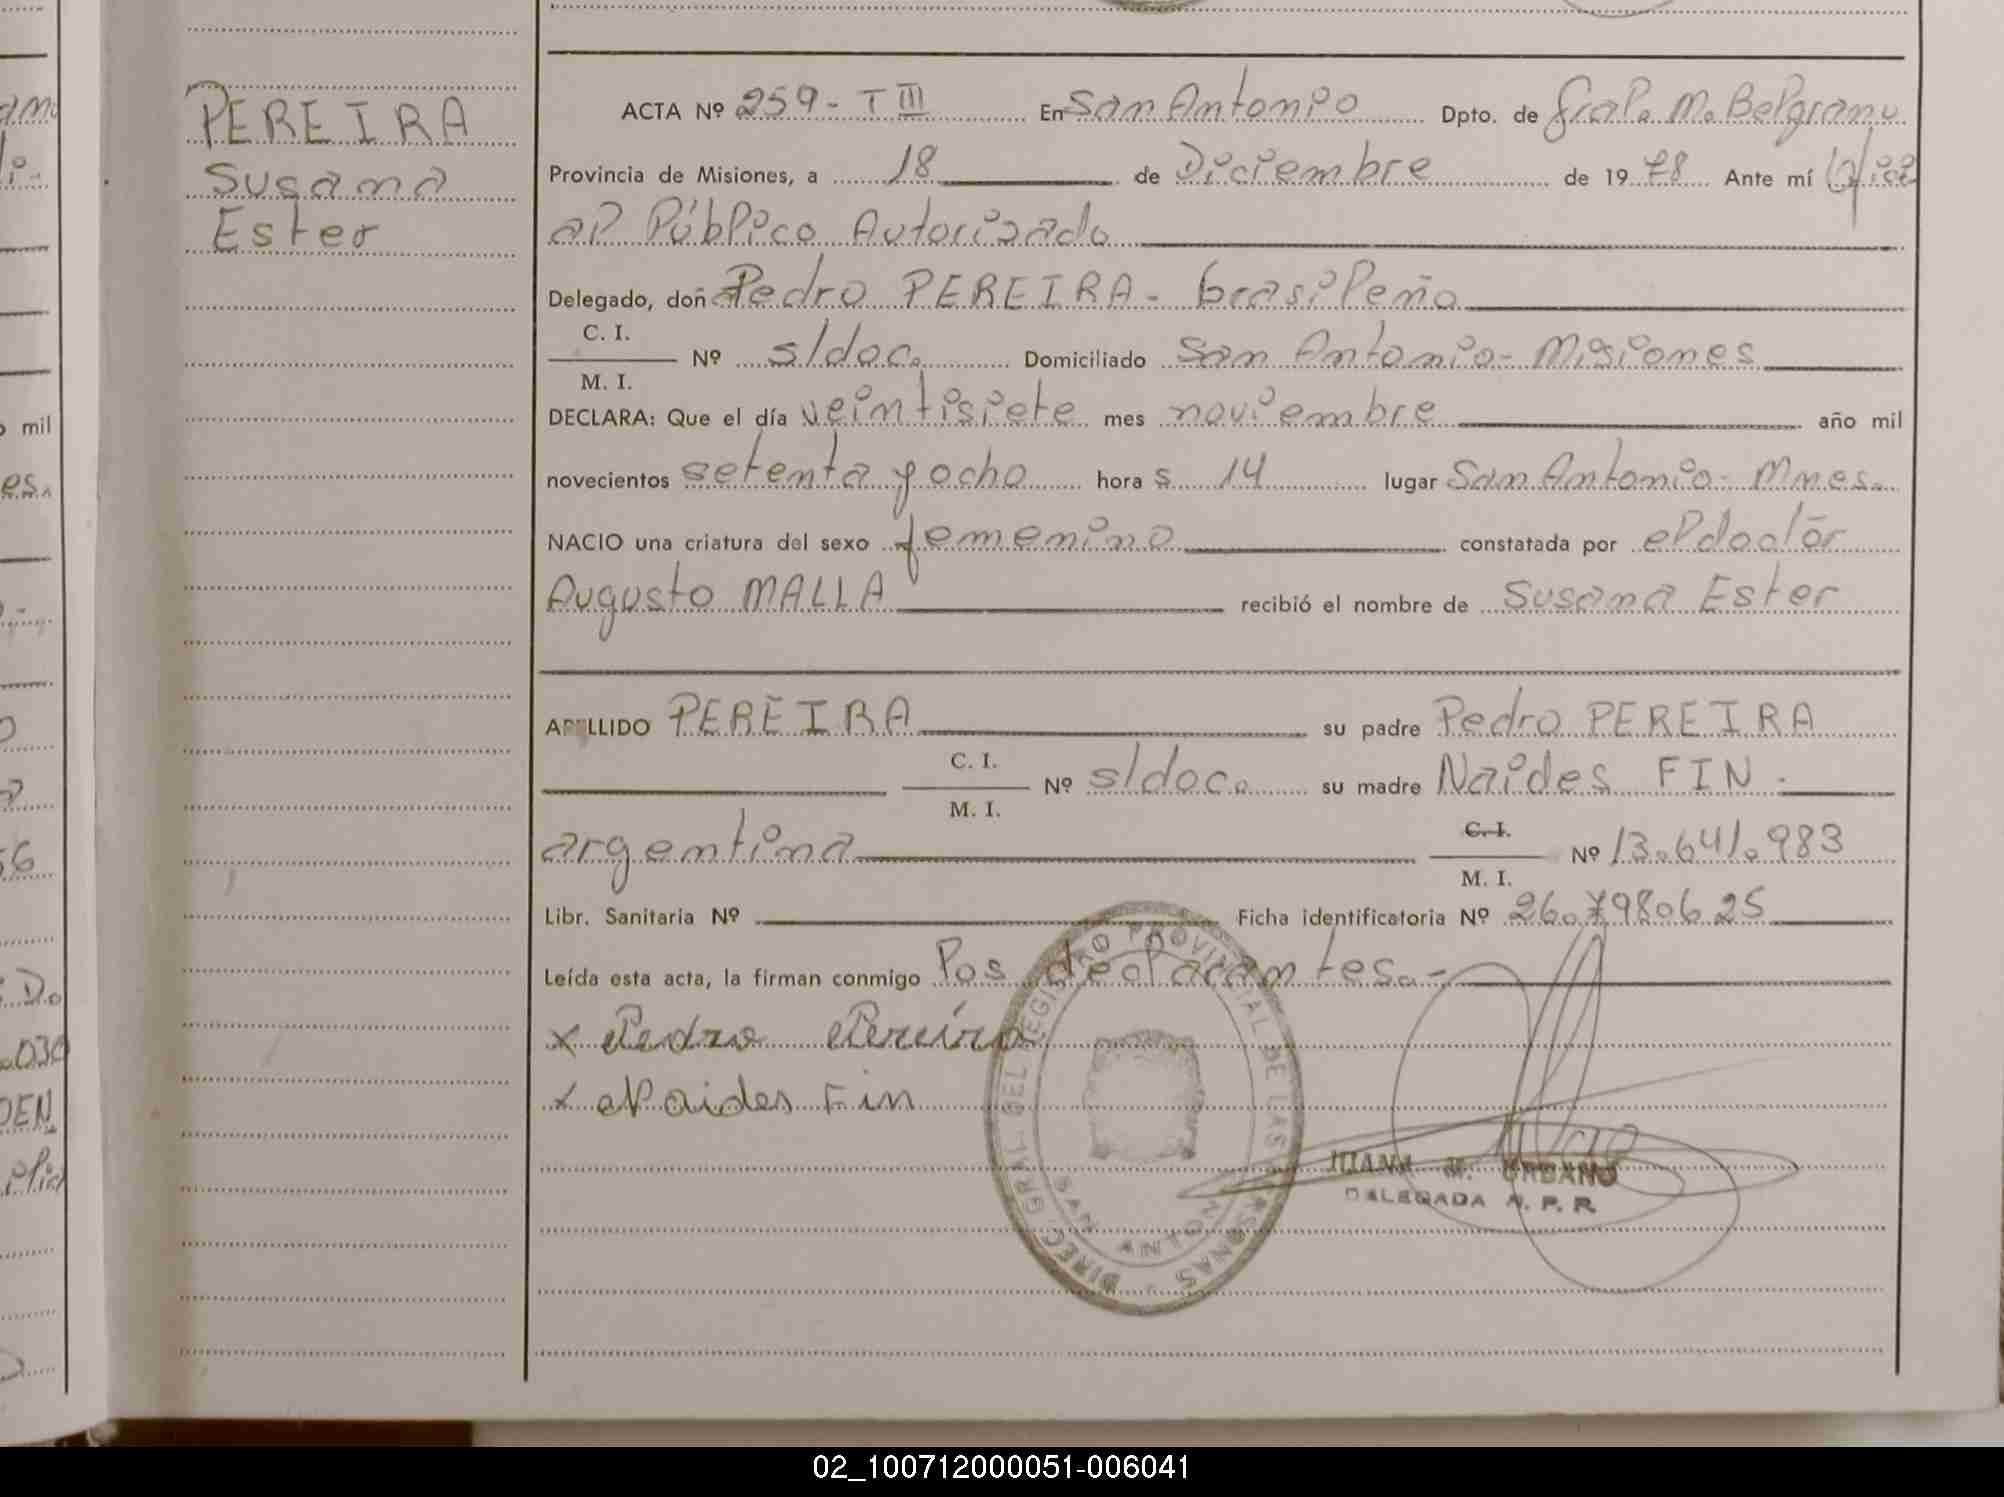 PEREIRA
Susana
Ester
ACTA Nº 259 - T III En San Antonio Dpto. de Gral. M. Belgrano
Provincia de Misiones, a 18 de Diciembre de 1978 Ante mí Ofici
al Público Autorizado
Delegado, don Pedro PEREIRA - brasileño
C. I.
M. I. Nº s/doc. Domiciliado San Antonio - Misiones
DECLARA: Que el día veintisiete mes noviembre año mil
novecientos setenta y ocho hora s 14 lugar San Antonio - Mnes.
NACIO una criatura del sexo femenino constatada por el doctor
Augusto MALLA recibió el nombre de Susana Ester
APELLIDO PEREIRA su padre Pedro PEREIRA
C. I.
M. I. Nº s/doc. su madre Naides FIN.
argentina C. I.
M. I. Nº 13.641.983
Libr. Sanitaria Nº Ficha identificatoria Nº 26.798.625
Leída esta acta, la firman conmigo los declarantes. -
x Pedro Pereira
x Naides Fin
DIREC. GRAL. DEL REGISTRO PROVINCIAL DE LAS PERSONAS
SAN ANTONIO
JUANA M. URBANO
DELEGADA R. P. R.
mil
es.
56
Do
.030
DEN
02_100712000051-006041